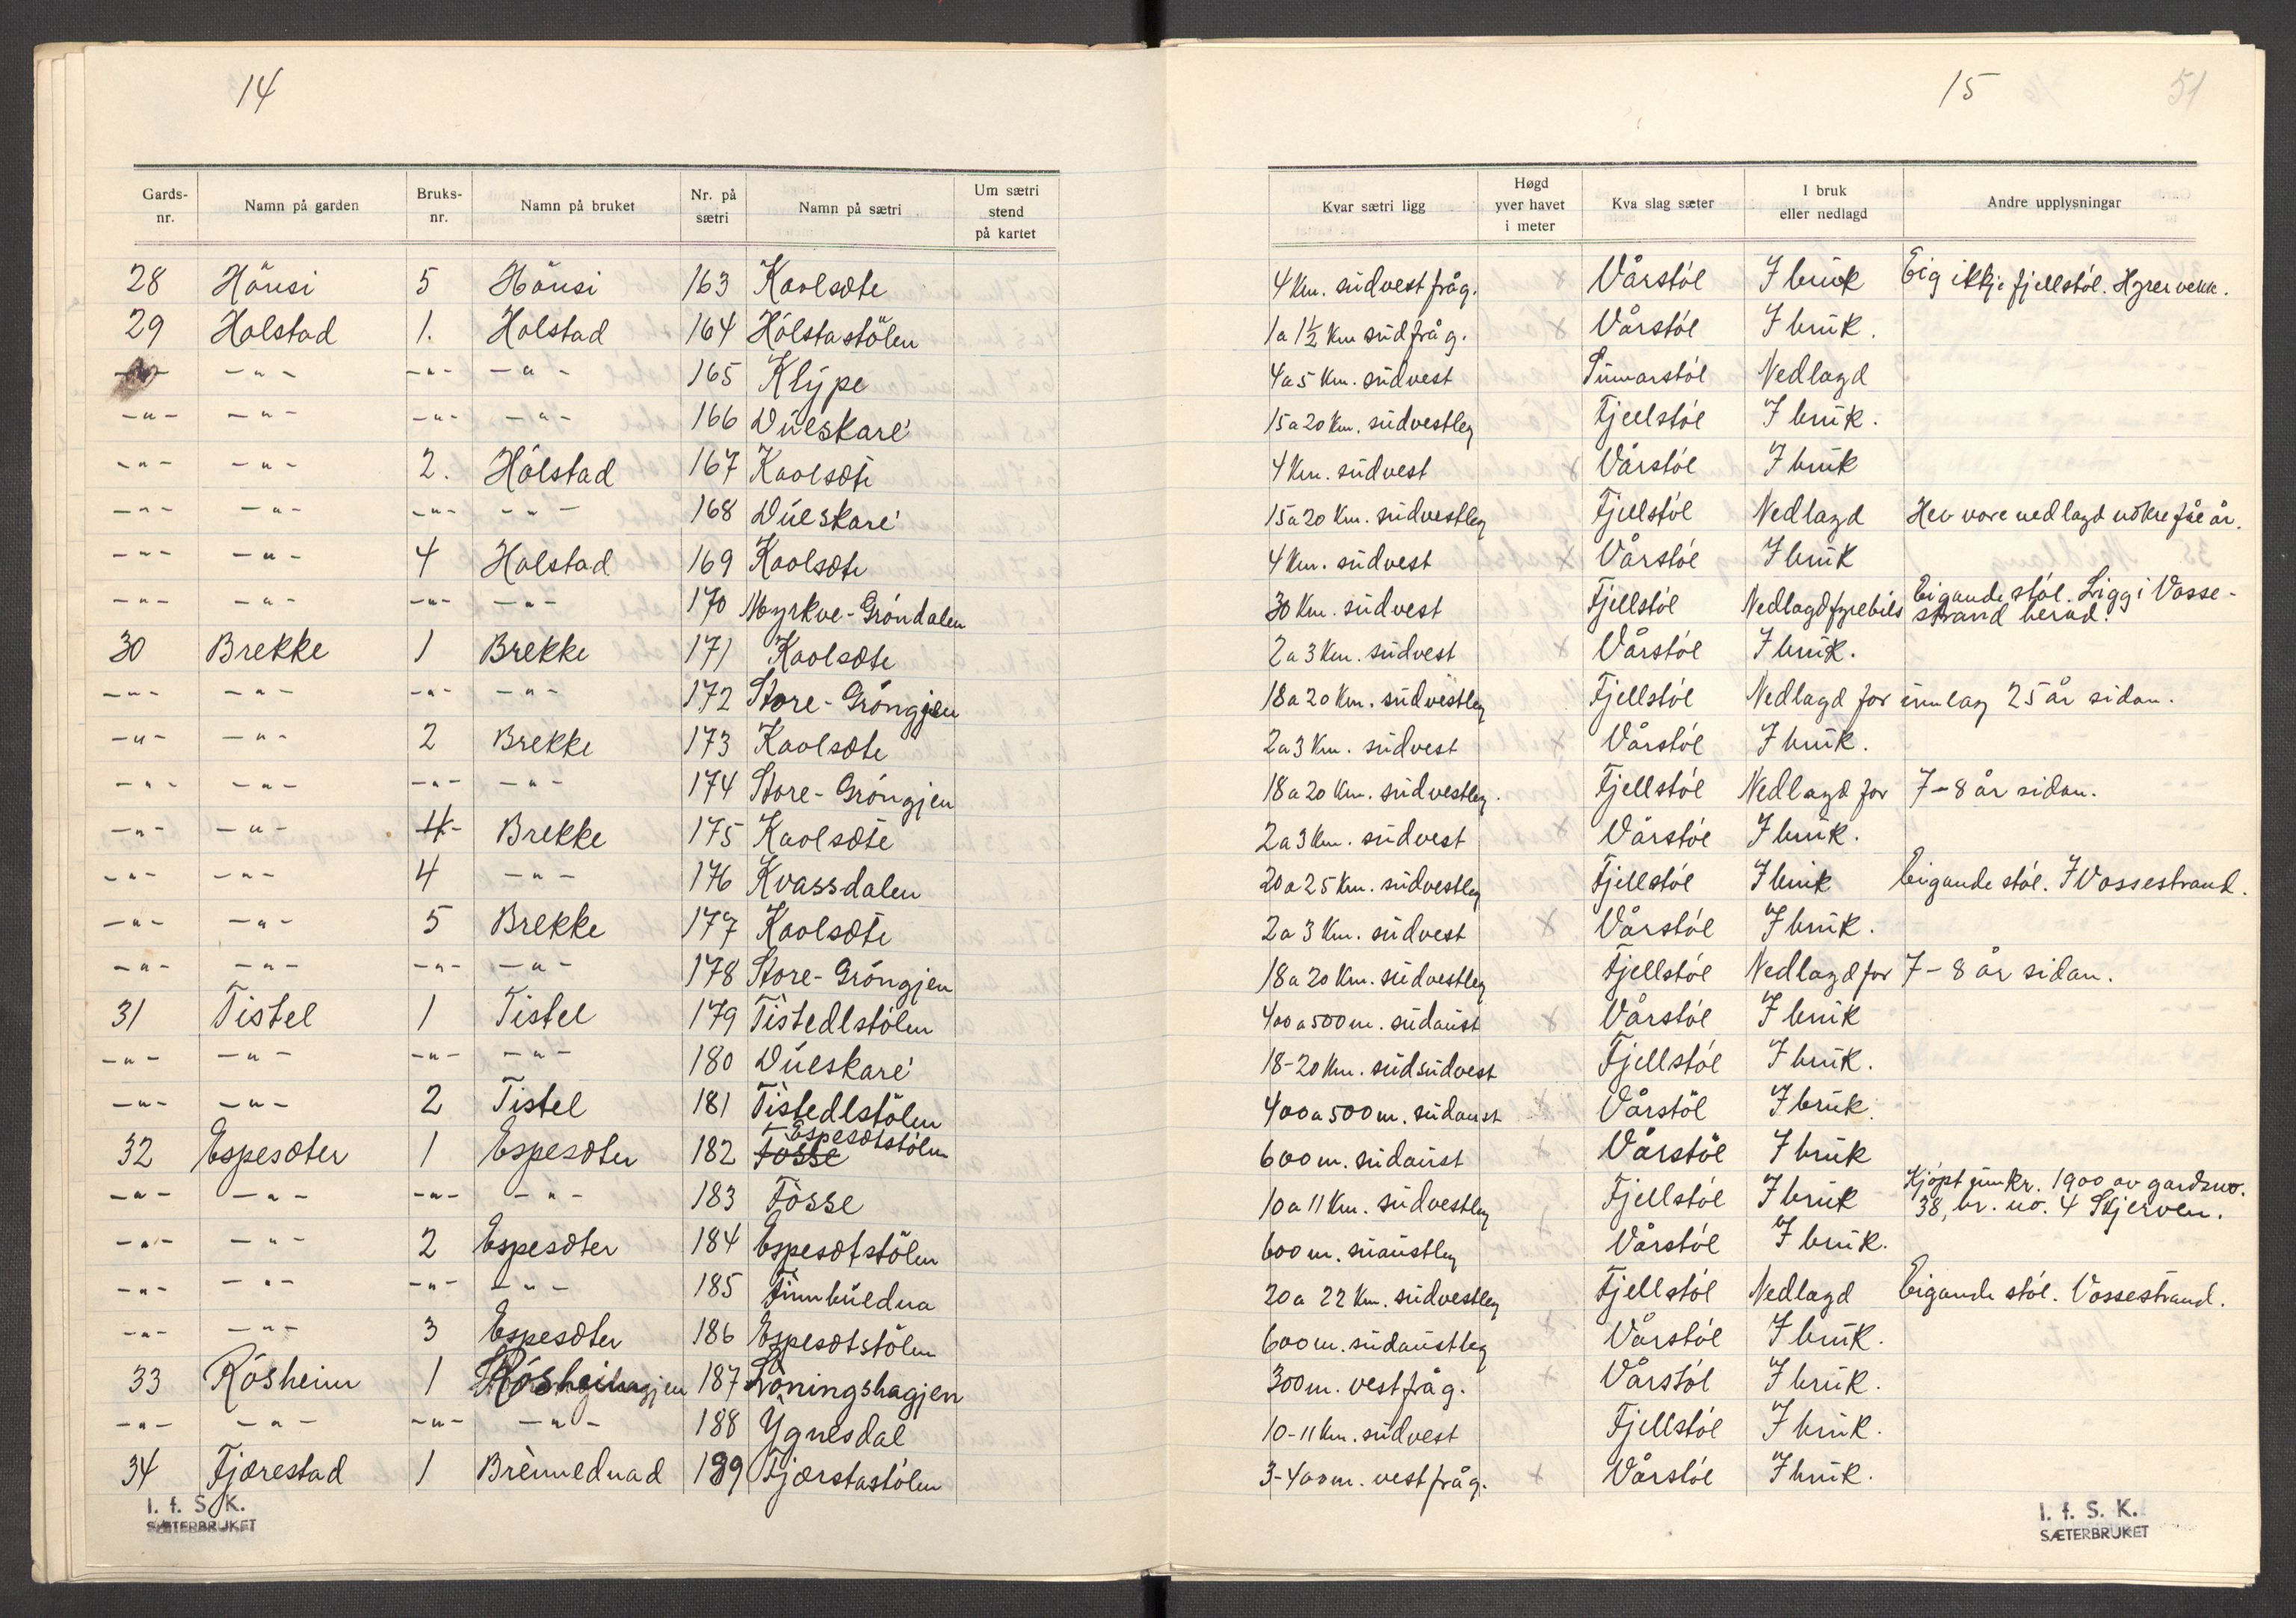 14
Gards-nr. Namn på garden Bruks-nr. Namn på bruket Nr. på sætri Namn på sætri Um sætri stend på kartet
28 Hönsi 5 Hönsi 163 Kaolsæte
29 Holstad 1. Holstad 164 Hólstastölen
-"- -"- -"- -"- 165 Klýpe
-"- -"- -"- -"- 166 Dúeskare'
-"- -"- 2. Hólstad 167 Kaolsæte
-"- -"- -"- -"- 168 Dúeskare'
-"- -"- 4 Holstad 169 Kaolsæte
-"- -"- -"- -"- 170 Myrkve-Gróndalen
30 Brekke 1 Brekke 171 Kaolsæte
-"- -"- -"- -"- 172 Store-Gróngjen
-"- -"- 2 Brekke 173 Kaolsæte
-"- -"- -"- -"- 174 Store-Gróngjen
-"- -"- 4 Brekke 175 Kaolsæte
-"- -"- 4 -"- 176 Kvassdalen
-"- -"- 5 Brekke 177 Kaolsæte
-"- -"- -"- -"- 178 Store-Gróngjen
31 Tistel 1 Tistel 179 Tistedlstólen
-"- -"- -"- -"- 180 Dúeskare'
-"- -"- 2 Tistel 181 Tistedlstölen
32 Espesæter 1 Espesæter 182 Fosse Espesætstólen
-"- -"- -"- -"- 183 Fòsse
-"- -"- 2 Espesæter 184 Espesætstölen
-"- -"- -"- -"- 185 Finnbúedna
-"- -"- 3 Espesæter 186 Espesætstölen
33 Rósheim 1 Rósheim 187 Lòningshagjen
-"- -"- -"- -"- 188 Ygnesdal
34 Fjærestad 1 Brènnednad 189 Fjærstastólen
I. f. S. K.
SÆTERBRUKET
15 51
Kvar sætri ligg Høgd yver havet i meter Kva slag sæter I bruk eller nedlagd Andre upplysningar
4 km. südvest frå g. Vårstól I brük Eig ikkje fjellstól. Hyrer vekk.
1 a 1½ km süd frå g. Vårstól I brük.
4 a 5 km. südvest Sümarstól Nedlagd
15 a 20 km. südvestleg Fjellstól I brük.
4 km. südvest Vårstól I brük
15 a 20 km. südvestleg Fjellstól Nedlagd Hev vore nedlagd nokre fåe år.
4 km. südvest Vårstól I brük
30 km. südvest Fjellstól Nedlagd fyrebils Eigande stól. Ligg i Vosse-
strand herad.
2 a 3 km. südvest Vårstól I brük.
18 a 20 km. südvestleg Fjellstól Nedlagd for ümlag 25 år sidan.
2 a 3 km. südvest Vårstól I brük.
18 a 20 km. südvestleg. Fjellstól Nedlagd for 7-8 år sidan.
2 a 3 km. südvest Vårstól I brük.
20 a 25 km. südvestleg Fjellstól I brük Eigande stól. I Vossestrand.
2 a 3 km. südvest x Vårstól I brük.
18 a 20 km. südvestleg Fjellstól Nedlagd for 7-8 år sidan.
400 a 500 m. südaust x Vårstól I brük
18-20 km. südsüdvest Fjellstól I brük.
400 a 500 m. südaust x Vårstöl I brük.
600 m. südaust x Vårstöl I brük
10 a 11 km. südvestleg Fjellstól I brük Kjópt ümkr. 1900 av gardsno.
38, br. no. 4 Skjerven.
600 m. süaustleg x Vårstól I brük.
20 a 22 km. südvestleg Fjellstól Nedlagd Eigande stól. Vossestrand.
600 m. südaustleg x Vårstól I brük.
300 m. vest frå g. x Vårstól I brük.
10-11 km. südvest Fjellstól I brük.
3-400 m. vest frå g. x Vårstól I brük.
I. f. S. K.
SÆTERBRUKET